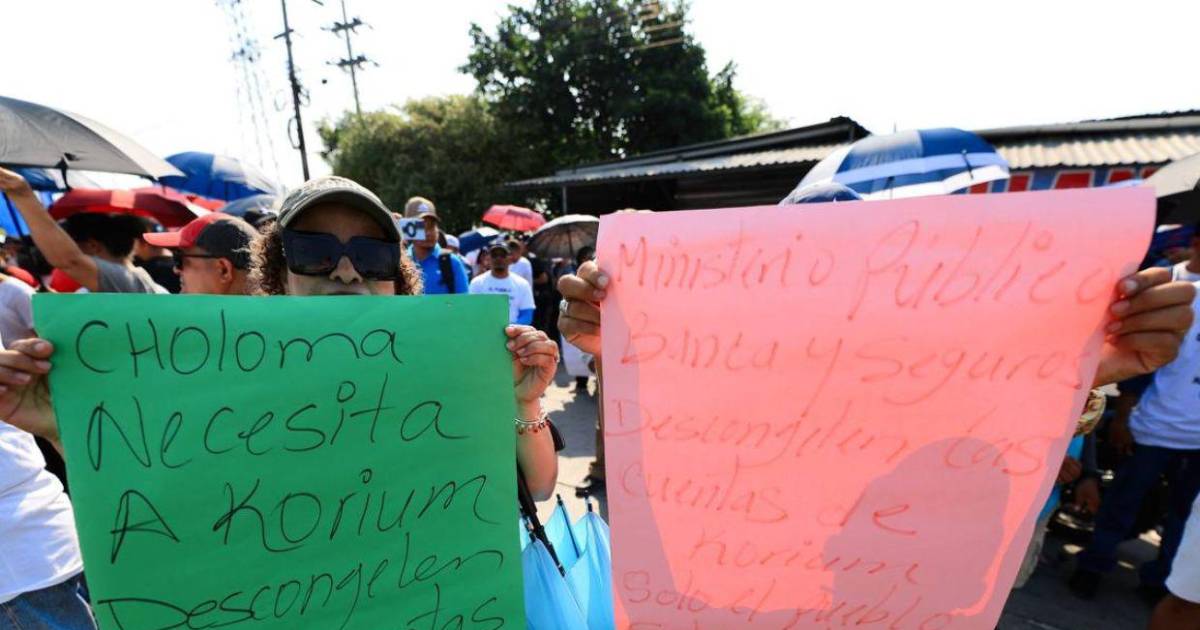 CHoloma
Necesita
A Korium
Descongelen
Ministerio Publico
Banca y Seguros
Descongelen las
cuentas de
Korium
Solo el Pueblo